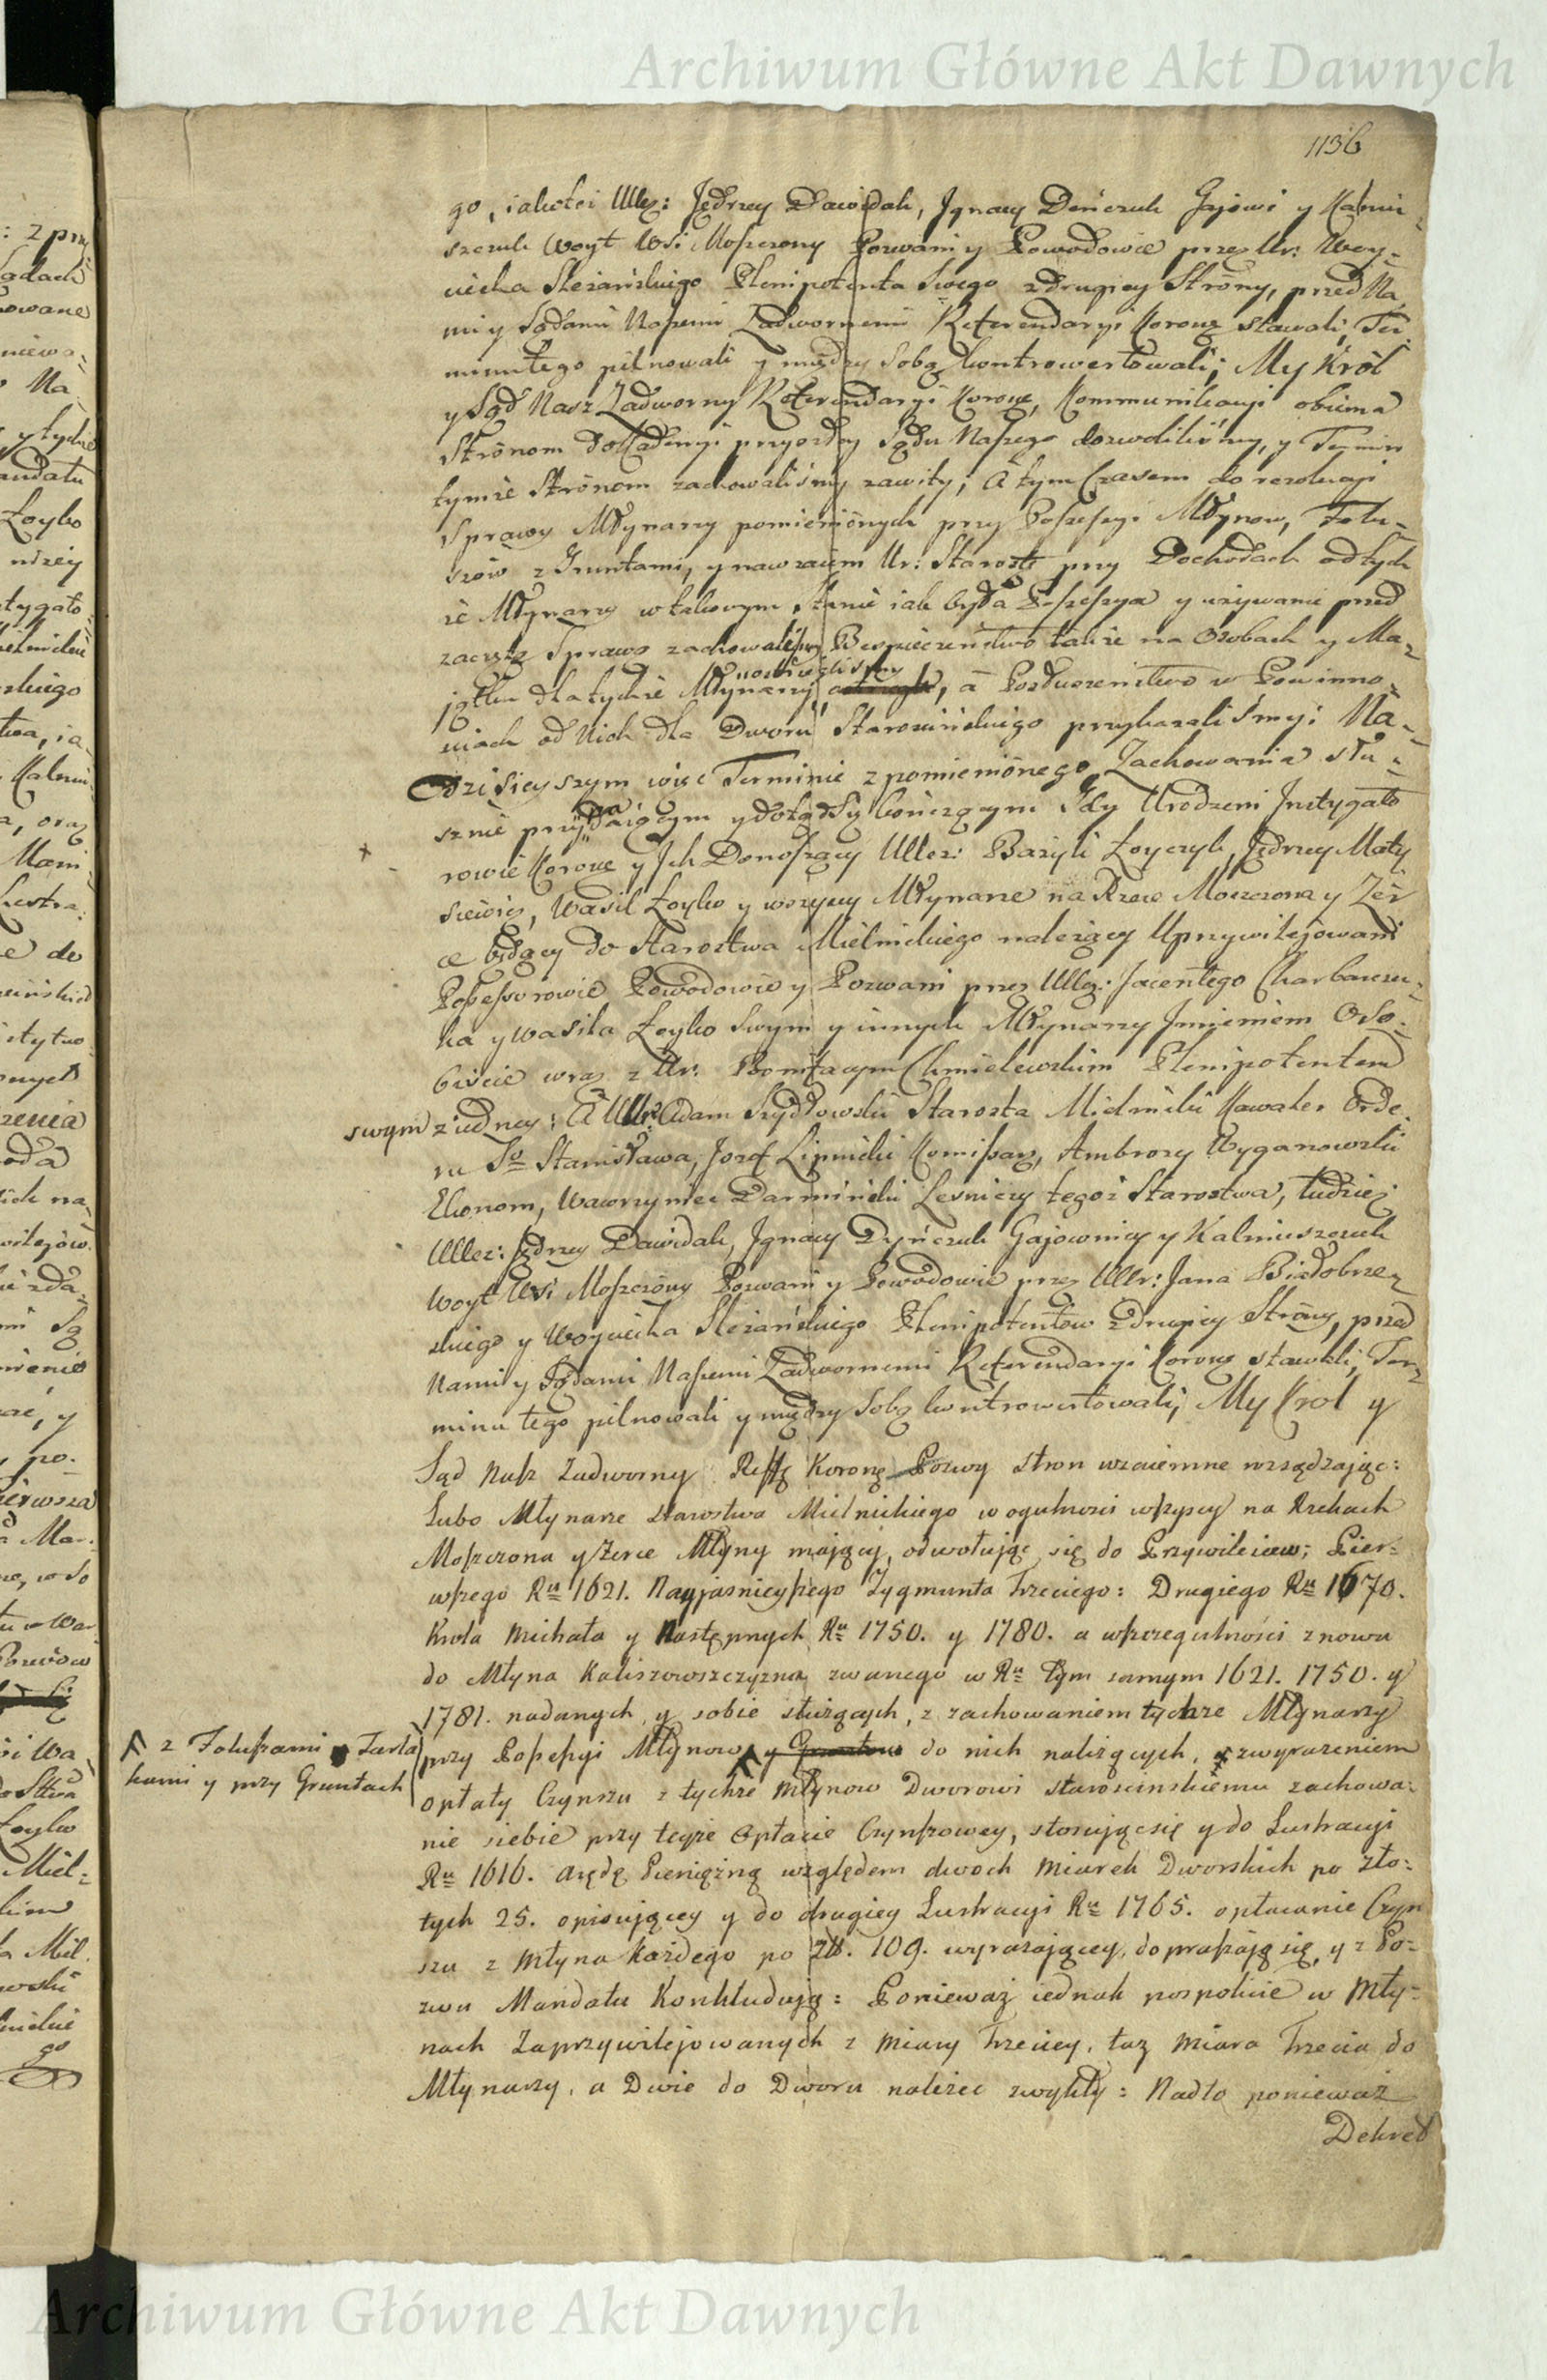 Archiwum Główne Akt Dawnych
1136
go, iakoteż Ullez: Jędrzey Dawidak, Jgnacy Deńczuk Gajowi y Kalniu-
szczuk Woyt Wsi Moszczony Pozwani y Powodowie przez Ur: Woy-
ciecha Sleżańskiego Plenipotenta Swego z drugiey Strony, przed Na-
mi y Sądami Naszemi Zadwornemi Referendaryi Koronę stawali, Ter-
minu tego pilnowali y między Sobą kontrowertowali; My Król
y Sąd Nasz Zadworny Referendaryi Koronę, Kommunikacyi obiema
Stronom dokładney przy Sądu Naszego dozwoliliśmy, y Termin
tymże Stronom zachowaliśmy zawity; A tym Czasem do rezolucyi
Sprawy Młynarzy pomienionych przy Possessyi Młynow, Folu-
szów z Gruntami, y nawzaiem Ur: Starostę przy Dochodach od tych
że Młynarzy w takowym Stanie iak była Possessya y używanie przed
zaczętą Sprawą zachowaliśmy Bespieczeństwo także na Osobach y Ma-
jątku dla tychże Młynarzy, , á Posłuszeństwo w Powinno-
sciach od Nich dla Dworu Starościńskiego przykazaliśmy: Na
Dzisieyszym więc Terminie z pomienionego Zachowania słu-
sznie przypadaiącym y dotąd Się kończącym Gdy Urodzeni Jnstygato
rowie Koronę y Jch Donoszący Ullez: Bazyli Łoyczyk, Jędrzey Maty
siewicz, Wasil Łoyko y wszyscy Młynarze na Rzece Moszczona y Żer
ce będący do Starostwa Mielnickiego należący Uprzywilejowani
Possessorowie Powodowie y Pozwani przez Ullez: Jacentego Charbaczu-
ka y Wasila Łoyko Swym y innych Młynarzy Jmieniem Oso-
biście wraz z Ur: Bonifacym Chmielewskim Plenipotentem
swym z iedney: A Ullr: Adam Szydłowski Starosta Mielnicki Kawaler Orde-
ru So Stanisława, Jozef Lipnicki Komissarz, Ambrozy Wyganowski
Ekonom, Wawrzyniec Darmiński Lesniczy tegoż Starostwa, tudzież
Ullez: Jędrzey Dawidak, Jgnacy Dyńczuk Gajownicy y Kalniuszczuk
Woyt Wsi Moszczony Pozwani y Powodowie przez Ullr: Jana Białobrze-
skiego y Woyciecha Sleżańskiego Plenipotentow z drugiey Strony, przed
Nami y Sądami Naszemi Zadwornemi Referendaryi Koronę stawali, Ter-
minu tego pilnowali y między Sobą kontrowertowali; My Krol y
Sąd Nasz Zadworny Reffę Koronę Pozwy stron wzaiemne rozsądzając:
Lubo Młynarze Starostwa Mielnickiego w ogulnosci wszyscy na Rzekach
Moszczona y Żerce Młyny mający, odwołując się do Przywileiow; Pier-
wszego Ru 1621. Nayjasnieyszego Zygmunta Trzeciego: Drugiego Ru 1670.
Krola Michała y Następnych Ru 1750. y 1780. a wszczegulności znowu
do Młyna Kaliszowszczyzna zwanego w Ru tym samym 1621. 1750. y
1781. nadanych y sobie służących, z zachowaniem tychże Młynarzy
z Foluszami y Tarta
kami y przy Gruntach
przy Possessyi Młynow y Gruntow do nich należących, z wyrazeniem
opłaty Czynszu z tychże Młynow Dworowi starościnskiemu zachowa-
nie siebie przy teyże Opłacie Czynszowey, stosując się y do Lustracyi
Ru 1616. Arędę Pieniężną względem dwoch Miarek Dworskich po zło-
tych 25. opisującey y do drugiey Lustracyi Ru 1765. opłacanie Czyn
szu z Młyna każdego po Złł. 109. wyrażającey, dopraszają się, y z Po-
zwu Mandatu Konkludują: Ponieważ iednak pospolicie w Mły-
nach Zaprzywilejowanych z Miary Trzeciey, taż Miara Trzecia do
Młynarzy, a Dwie do Dworu należeć zwykły: Nadto ponieważ
Dekret
Archiwum Główne Akt Dawnych